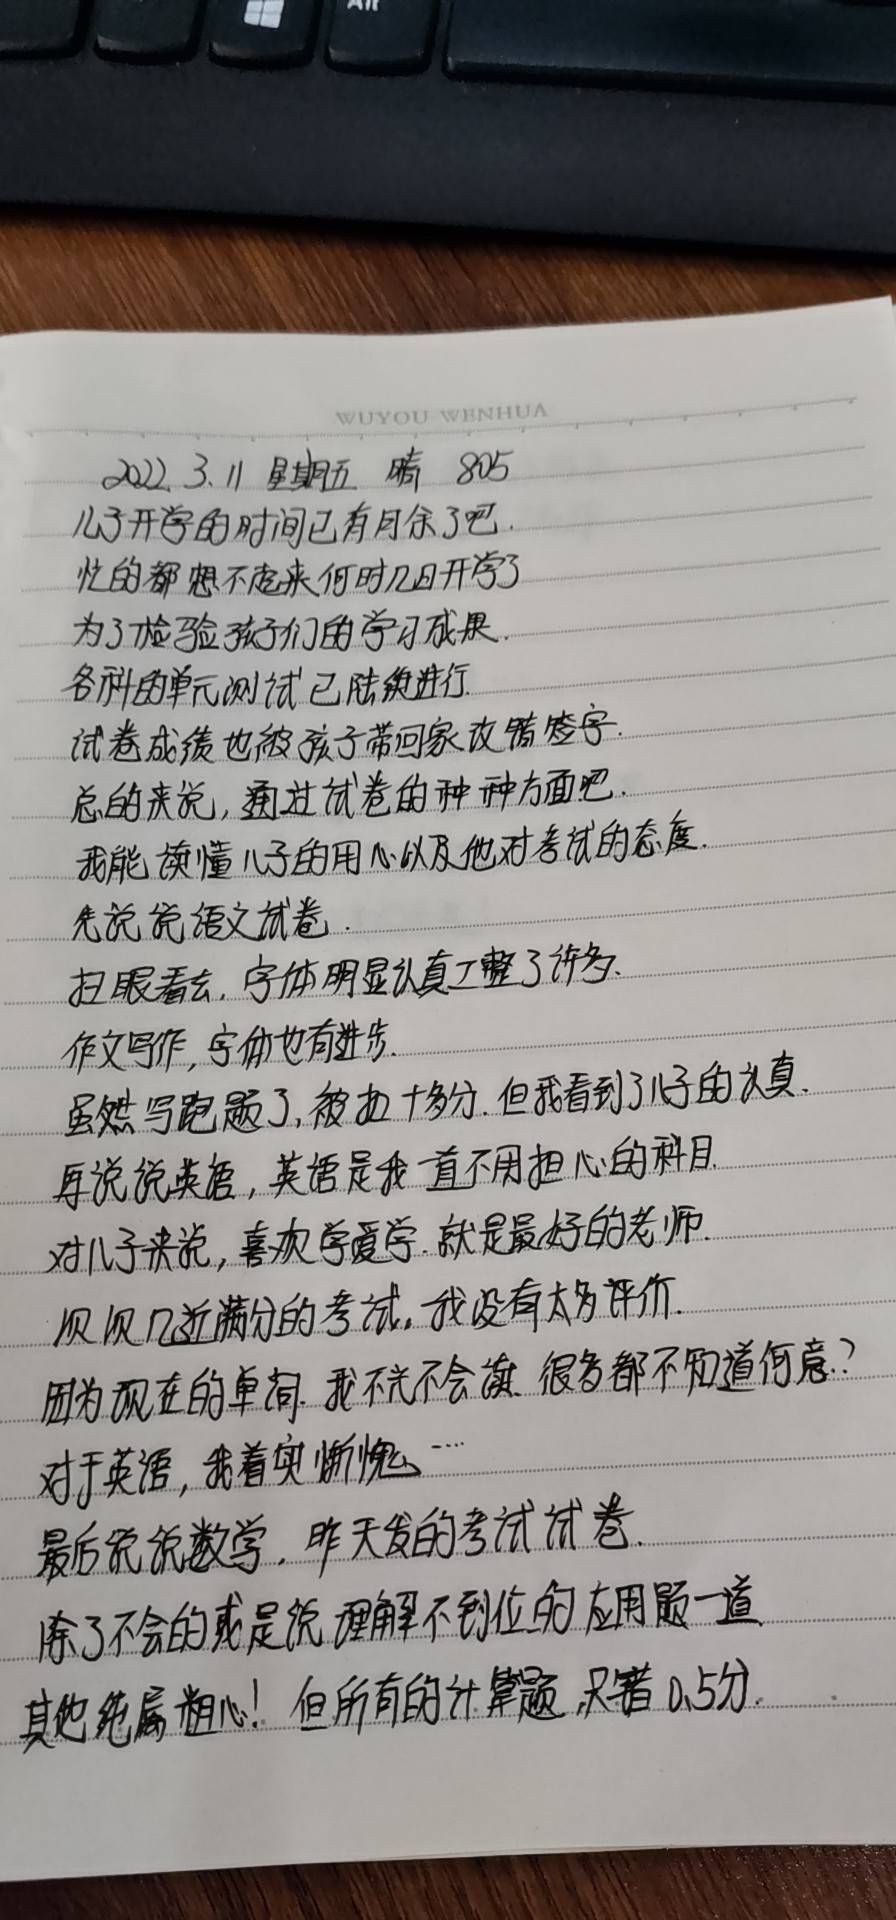 Alt
WUYOU WENHUA
2022.3.11 星期五 晴 805
儿子开学的时间已有月余了吧.
忙的都想不起来何时几日开学了
为了检验孩子们的学习成果.
各科的单元测试已陆续进行
试卷成绩也被孩子带回家改错签字.
总的来说,通过试卷的种种方面吧.
我能读懂儿子的用心以及他对考试的态度.
先说说语文试卷.
扫眼看去,字体明显认真工整了许多、
作文写作,字体也有进步.
虽然写跑题了,被扣十多分.但我看到了儿子的认真.
再说说英语,英语是我一直不用担心的科目.
对儿子来说,喜欢学爱学.就是最好的老师.
次次几近满分的考试,我没有太多评价.
因为现在的单词.我不光不会读.很多都不知道何意.?
对于英语,我着实惭愧…
最后说说数学,昨天发的考试试卷.
除了不会的或是说理解不到位的应用题一道
其他纯属粗心!但所有的计算题,只错0.5分.